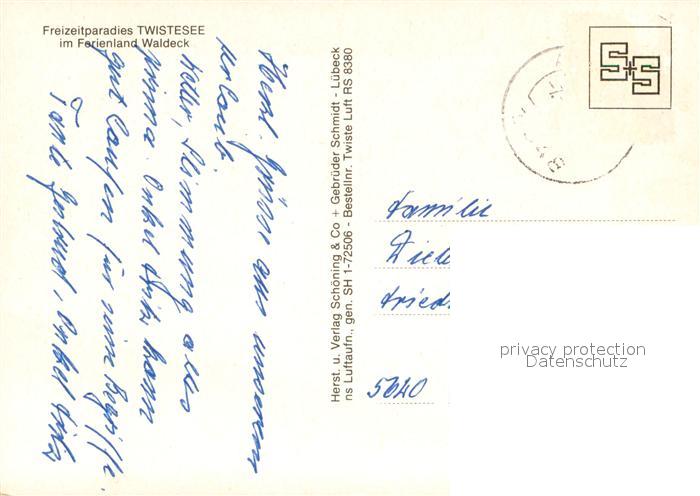 Freizeitparadies TWISTESEE
im Ferienland Waldeck
Herzl. Grüße aus unserem
Urlaub.
Wetter, Stimmung alles
prima. Onkel Fritz kann
gut laufen für seine Begriffe.
Tante Gertrud, Onkel Fritz
Herst. u. Verlag Schöning & Co + Gebrüder Schmidt - Lübeck
ns Luftaufn., gen. SH 1-72506 - Bestellnr. Twiste Luft RS 8380
Familie
Diel
Fried
5840
privacy protection
Datenschutz